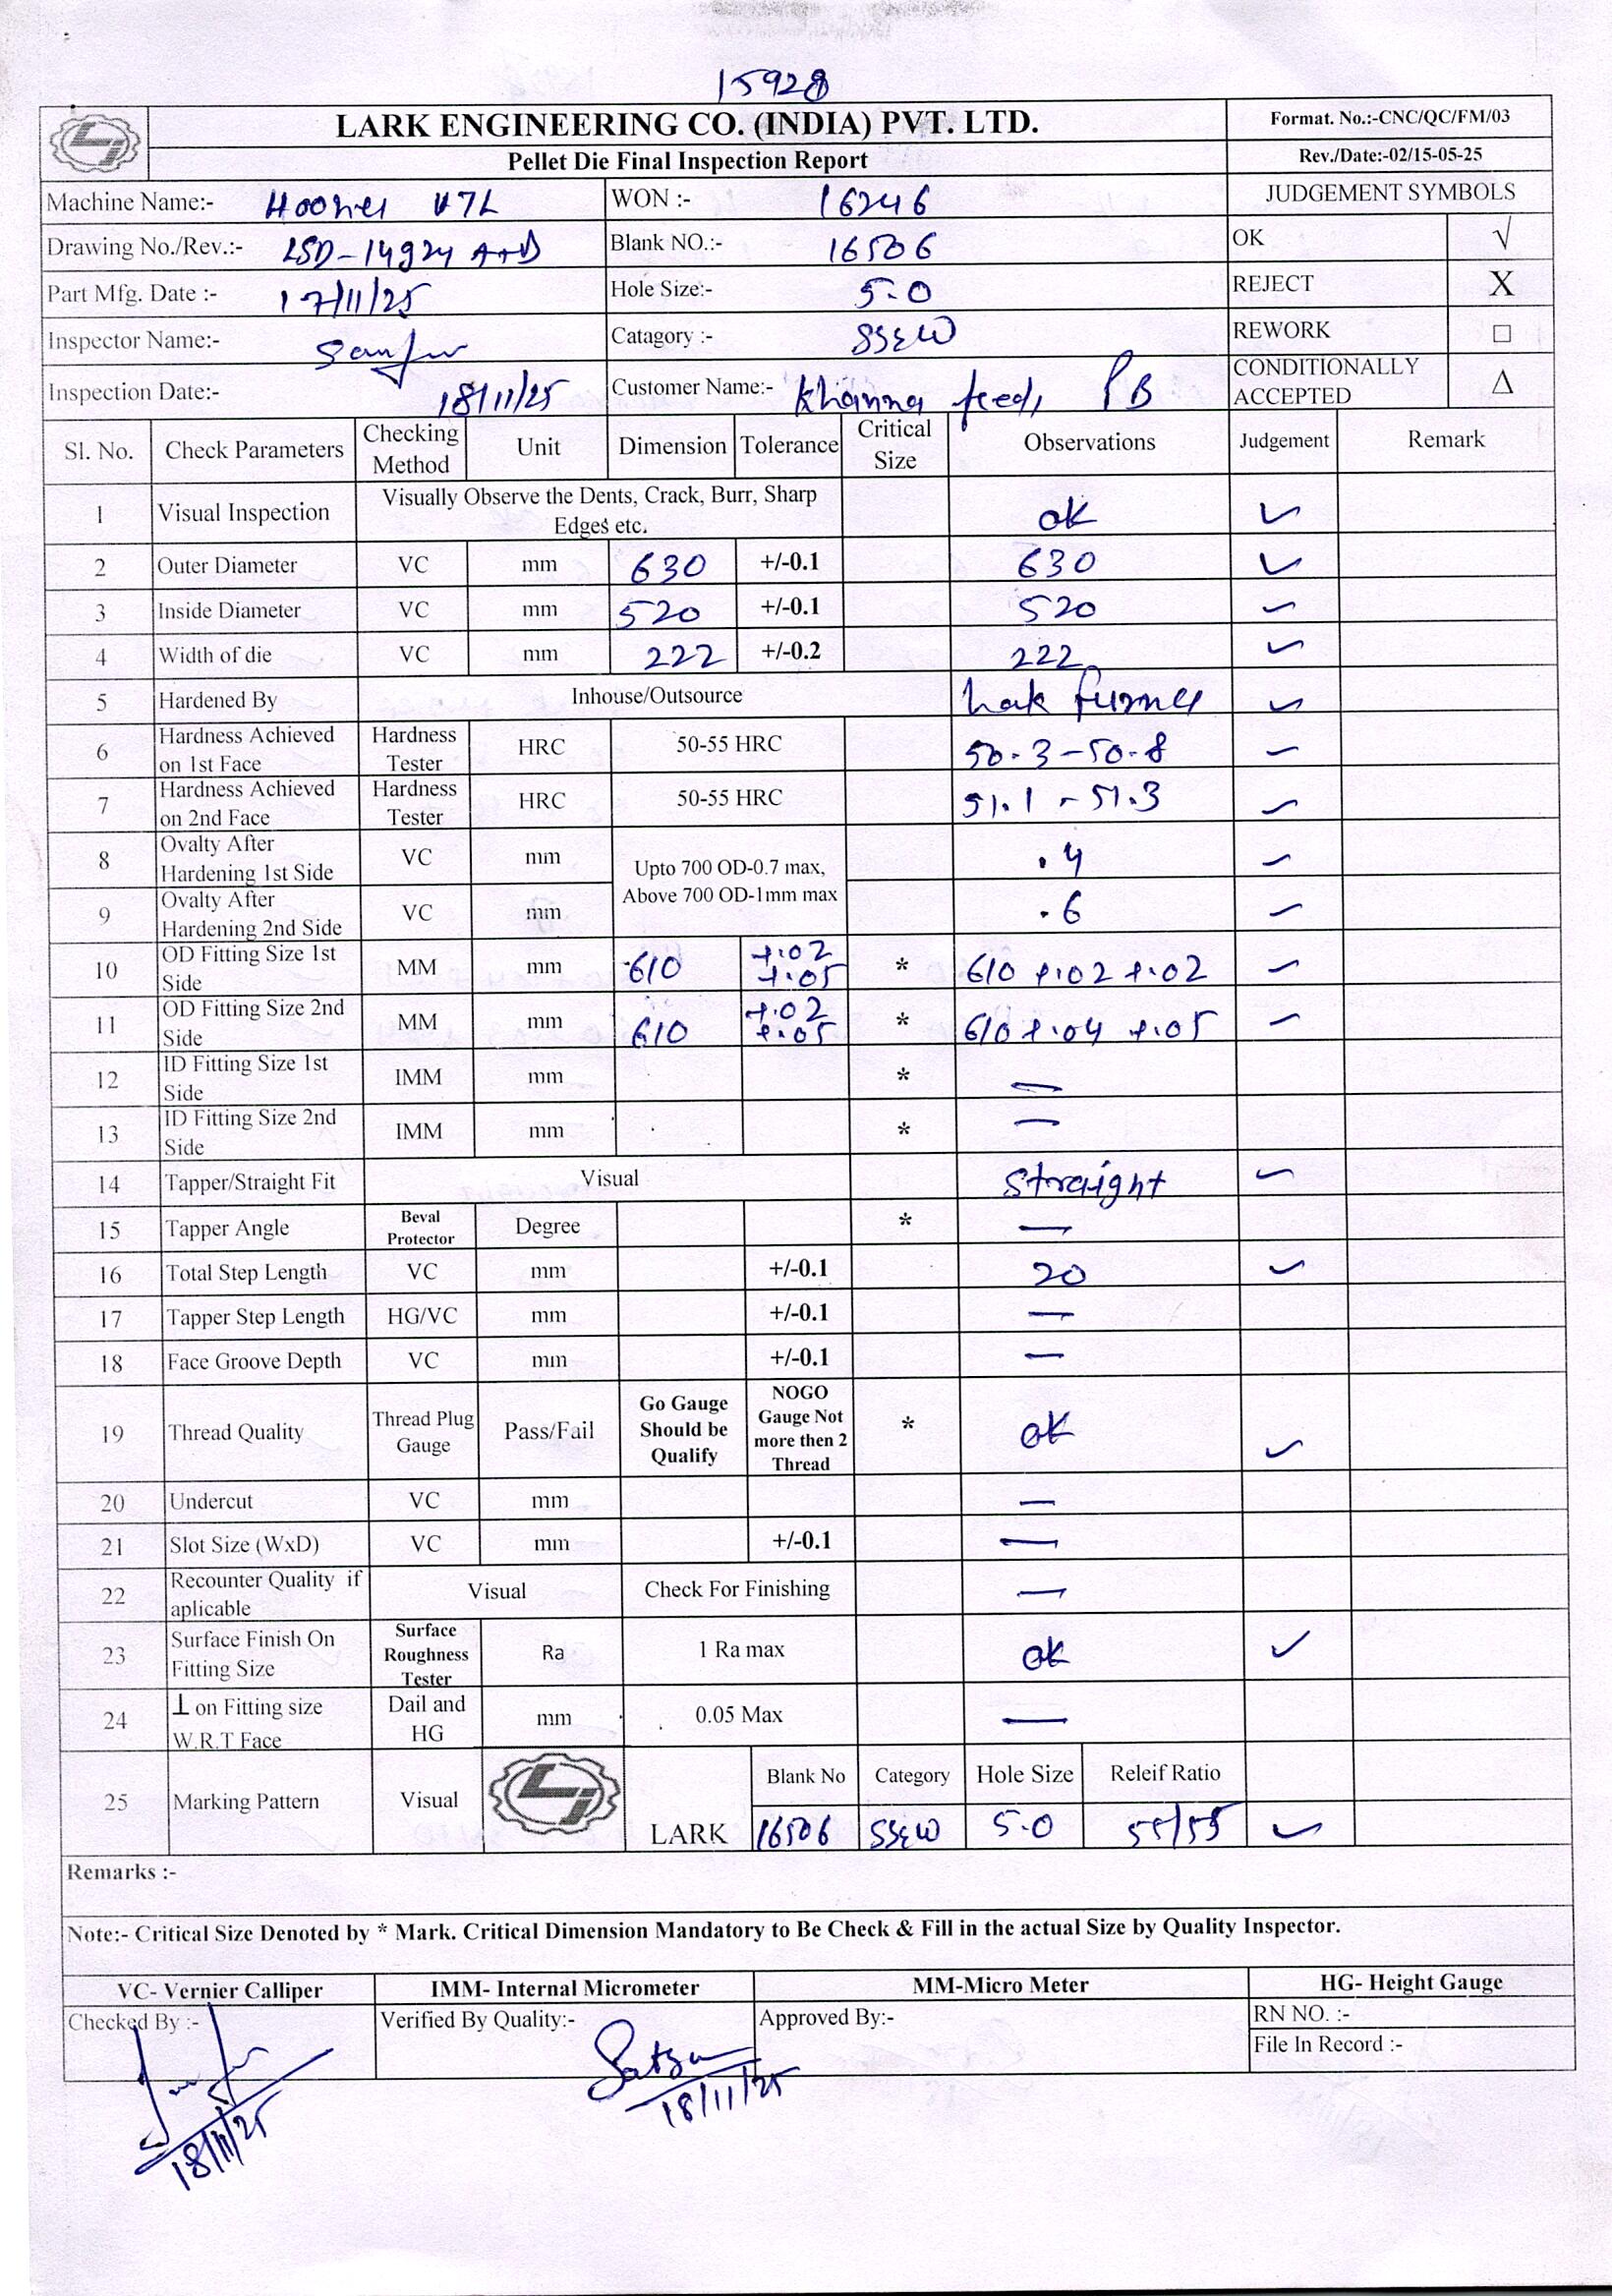 15928
LARK ENGINEERING CO. (INDIA) PVT. LTD.
Format. No.:-CNC/QC/FM/03
Pellet Die Final Inspection Report
Rev./Date:-02/15-05-25
Machine Name:- V7L WON :- 16246 JUDGEMENT SYMBOLS
Drawing No./Rev.:- LSD-14924 A+D Blank NO.:- 16506 OK √
Part Mfg. Date :- 17/11/25 Hole Size:- 5.0 REJECT X
Inspector Name:- Catagory :- SSEW REWORK □
Inspection Date:- 18/11/25 Customer Name:- Khanna feeds PB CONDITIONALLY ACCEPTED Δ
Sl. No. Check Parameters Checking Method Unit Dimension Tolerance Critical Size Observations Judgement Remark
1 Visual Inspection Visually Observe the Dents, Crack, Burr, Sharp Edges etc. ok ✓
2 Outer Diameter VC mm 630 +/-0.1 630 ✓
3 Inside Diameter VC mm 520 +/-0.1 520 ✓
4 Width of die VC mm 222 +/-0.2 222 ✓
5 Hardened By Inhouse/Outsource ✓
6 Hardness Achieved on 1st Face Hardness Tester HRC 50-55 HRC 50.3-50.8 ✓
7 Hardness Achieved on 2nd Face Hardness Tester HRC 50-55 HRC 51.1-51.3 ✓
8 Ovalty After Hardening 1st Side VC mm Upto 700 OD-0.7 max, Above 700 OD-1mm max .4 ✓
9 Ovalty After Hardening 2nd Side VC mm .6 ✓
10 OD Fitting Size 1st Side MM mm 610 +.02 +.05 * 610 +.02 +.02 ✓
11 OD Fitting Size 2nd Side MM mm 610 +.02 +.05 * 610 +.04 +.05 ✓
12 ID Fitting Size 1st Side IMM mm * —
13 ID Fitting Size 2nd Side IMM mm * —
14 Tapper/Straight Fit Visual straight ✓
15 Tapper Angle Beval Protector Degree * —
16 Total Step Length VC mm +/-0.1 20 ✓
17 Tapper Step Length HG/VC mm +/-0.1 —
18 Face Groove Depth VC mm +/-0.1 —
19 Thread Quality Thread Plug Gauge Pass/Fail Go Gauge Should be Qualify NOGO Gauge Not more then 2 Thread * ok ✓
20 Undercut VC mm —
21 Slot Size (WxD) VC mm +/-0.1 —
22 Recounter Quality if aplicable Visual Check For Finishing —
23 Surface Finish On Fitting Size Surface Roughness Tester Ra 1 Ra max ok ✓
24 ⊥ on Fitting size W.R.T Face Dail and HG mm 0.05 Max —
25 Marking Pattern Visual LARK Blank No Category Hole Size Releif Ratio
16506 SSEW 5.0 55/55 ✓
Remarks :-
Note:- Critical Size Denoted by * Mark. Critical Dimension Mandatory to Be Check & Fill in the actual Size by Quality Inspector.
VC- Vernier Calliper IMM- Internal Micrometer MM-Micro Meter HG- Height Gauge
Checked By :- Verified By Quality:- Approved By:- RN NO. :-
File In Record :-
18/11/25 18/11/25